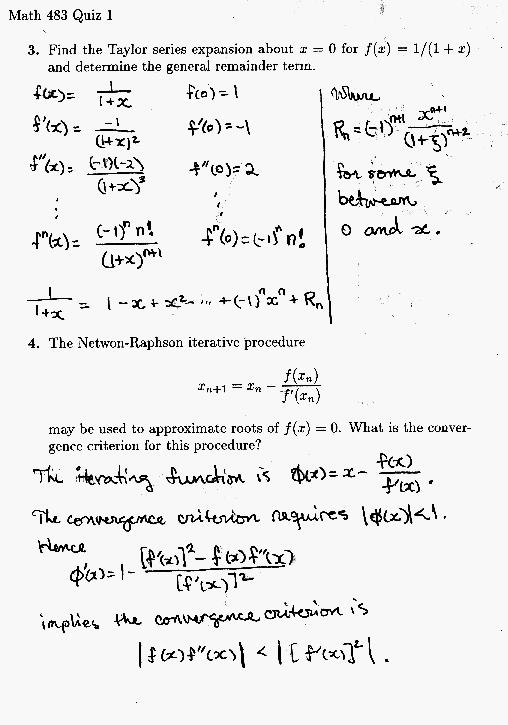 Math 483 Quiz 1
3. Find the Taylor series expansion about x = 0 for f(x) = 1/(1 + x)
and determine the general remainder term.
f(x) = 1/(1+x)   f(0) = 1
f'(x) = -1/(1+x)²   f'(0) = -1
f''(x) = (-1)(-2)/(1+x)³   f''(0) = 2
⋮   ⋮
fⁿ(x) = (-1)ⁿ n!/(1+x)ⁿ⁺¹   fⁿ(0) = (-1)ⁿ n!
1/(1+x) = 1 - x + x² - ... + (-1)ⁿxⁿ + Rₙ
Where
Rₙ = (-1)ⁿ⁺¹ xⁿ⁺¹/(1+ξ)ⁿ⁺²
for some ξ
between
0 and x.
4. The Netwon-Raphson iterative procedure
xₙ₊₁ = xₙ - f(xₙ)/f'(xₙ)
may be used to approximate roots of f(x) = 0. What is the conver-
gence criterion for this procedure?
The iterating function is ϕ(x) = x - f(x)/f'(x).
The convergence criterion requires |ϕ'(x)| < 1.
Hence
ϕ'(x) = 1 - ([f'(x)]² - f(x)f''(x))/[f'(x)]²
implies the convergence criterion is
|f(x)f''(x)| < |[f'(x)]²|.